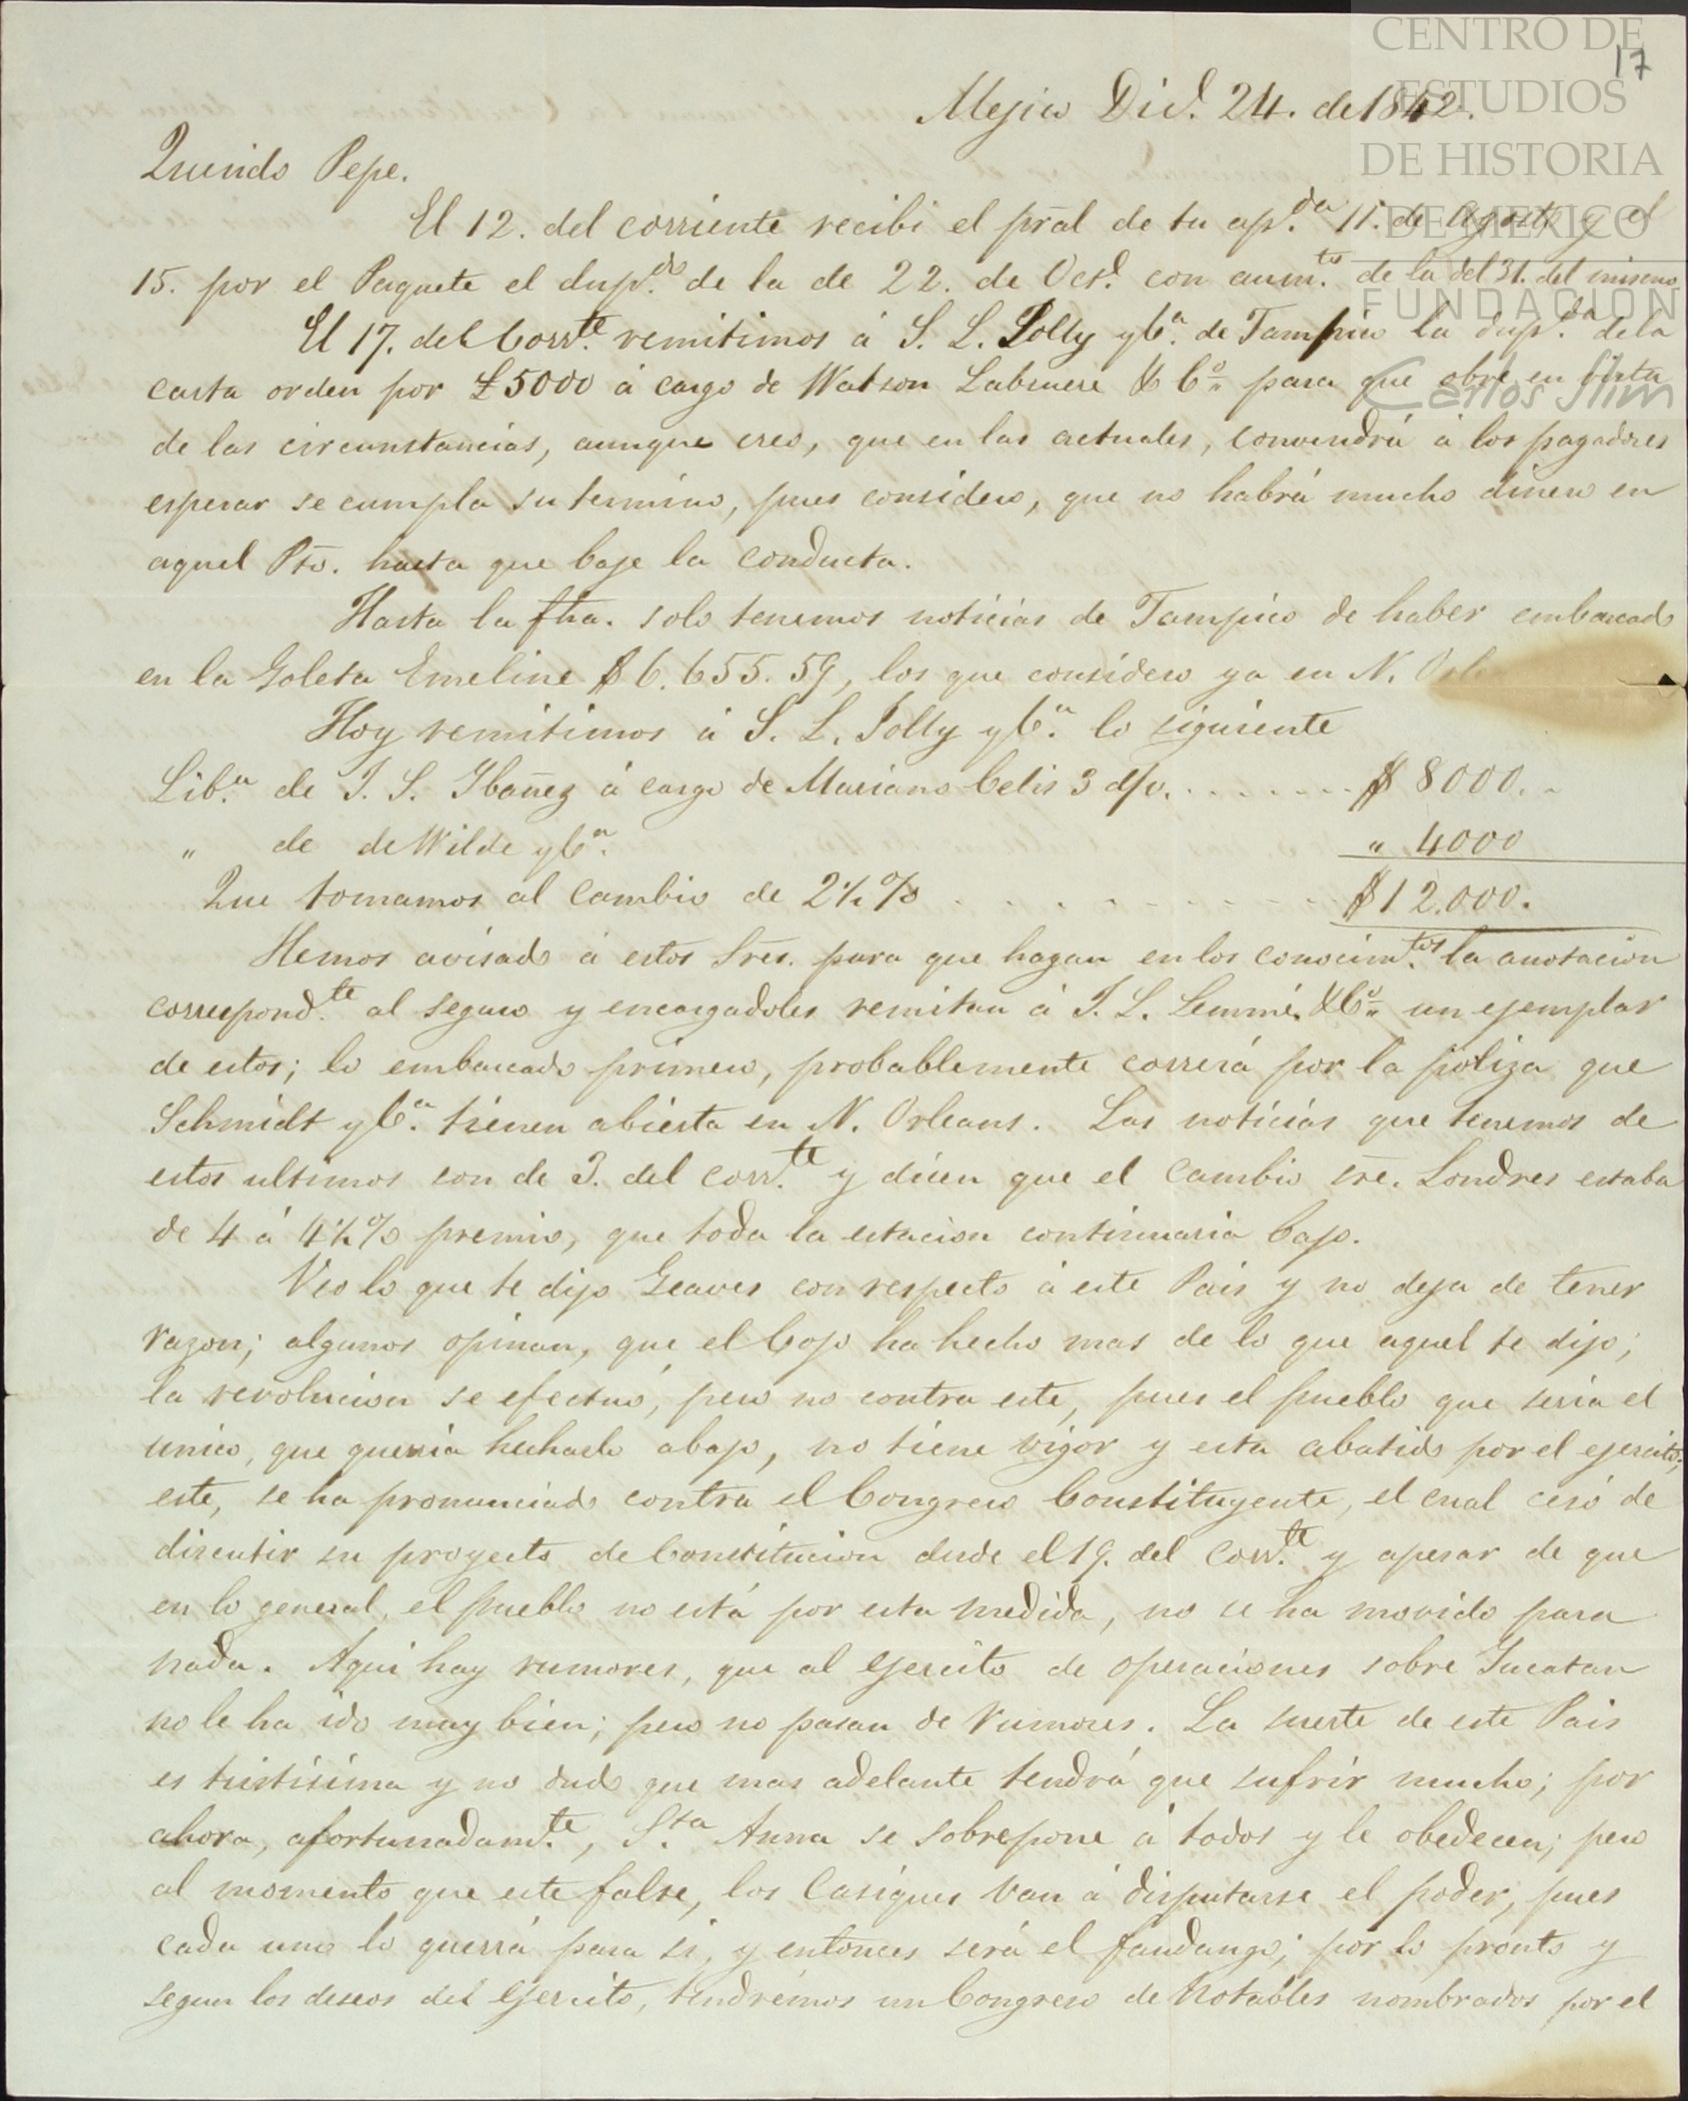 CENTRO DE
ESTUDIOS
DE HISTORIA
DE MEXICO
FUNDACION
Carlos Slim
17
Mejico Dic.e 24. de 1842.
Querido Pepe.
El 12. del corriente recibi el pral de tu ap.da 11. de Agosto y el
15. por el Paquete el dup.do de la de 22. de Oct.e con aum.to de la del 31. del mismo
El 17. del Corr.te remitimos á S. L. Jolly y C.a de Tampico la dup.da de la
carta orden por £5000 á cargo de Watson Labruere & C.o para que obre en vista
de las circunstancias, aunque creo, que en las actuales, convendrá á los pagadores
esperar se cumpla su termino, pues considero, que no habrá mucho dinero en
aquel Pto. hasta que baje la conducta.
Hasta la fha. solo tenemos noticias de Tampico de haber embarcado
en la Goleta Emeline $6.655.59, los que considero ya en N.
Hoy remitimos á S. L. Jolly y C.a lo siguiente
Lib.a de J. S. Ybañez á cargo de Mariano Celis 3 d/v. . . . . . . . $ 8000. "
" de de Wilde y C.a " 4000
Que tomamos al cambio de 2½% . . . . . . . . . . $12.000.
Hemos avisado á estos Sres. para que hagan en los conocim.tos la anotacion
correspond.te al seguro y encargadoles remitan á J. L. Lemmé & C.o un ejemplar
de estos; lo embarcado primero, probablemente correrá por la poliza que
Schmidt y C.a tienen abierta en N. Orleans. Las noticias que tenemos de
estos ultimos son de 3. del corr.te y dicen que el cambio sre. Londres estaba
de 4 á 4½% premio, que toda la estacion continuaria bajo.
Veo lo que te dijo Geaves con respecto á este Pais y no deja de tener
razon; algunos opinan, que el Cojo ha hecho mas de lo que aquel te dijo;
la revolucion se efectuó, pero no contra este, pues el pueblo que seria el
unico, que queria hecharlo abajo, no tiene vigor y esta abatido por el ejercito;
este, se ha pronunciado contra el Congreso Constituyente, el cual cesó de
discutir su proyecto de Constitucion desde el 19. del corr.te y apesar de que
en lo general, el pueblo no está por esta medida, no se ha movido para
nada. Aqui hay rumores, que al ejercito de operaciones sobre Yucatan
no le ha ido muy bien; pero no pasan de rumores. La suerte de este Pais
es tristisima y no dudo que mas adelante tendrá que sufrir mucho; por
ahora, afortunadam.te, S.ta Anna se sobrepone á todos y le obedecen; pero
al momento que este falte, los Casiques van á disputarse el poder, pues
cada uno lo querrá para si, y entonces será el fandango; por lo pronto y
segun los deseos del Ejercito, tendrémos un Congreso de Notables nombrados por el